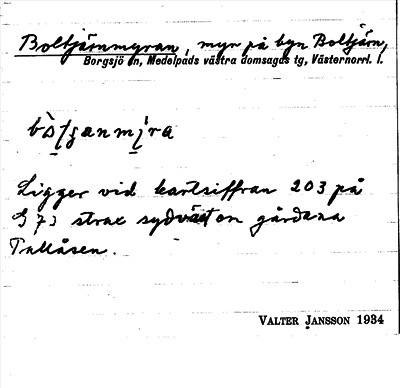 Boltjärnmyran, myr på byn Boltjärn,
Borgsjö sn, Medelpads västra domsagas tg, Västernorrl. l.
Ligger vid kartsiffran 203 på
G 73 strax sydväst om gårdarna
Tallåsen.
VALTER JANSSON 1934